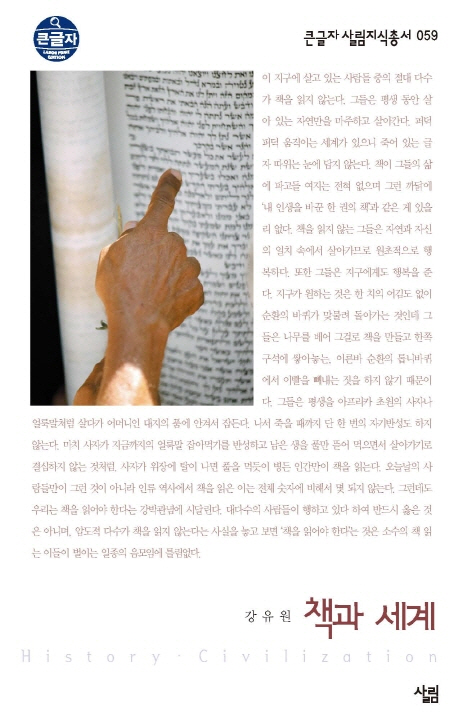 큰글자
LARGE PRINT EDITION
큰글자 살림지식총서 059
이 지구에 살고 있는 사람들 중의 절대 다수
가 책을 읽지 않는다. 그들은 평생 동안 살
아 있는 자연만을 마주하고 살아간다. 퍼덕
퍼덕 움직이는 세계가 있으니 죽어 있는 글
자 따위는 눈에 담지 않는다. 책이 그들의 삶
에 파고들 여지는 전혀 없으며 그런 까닭에
'내 인생을 바꾼 한 권의 책'과 같은 게 있을
리 없다. 책을 읽지 않는 그들은 자연과 자신
의 일치 속에서 살아가므로 원초적으로 행
복하다. 또한 그들은 지구에게도 행복을 준
다. 지구가 원하는 것은 한 치의 어김도 없이
순환의 바퀴가 맞물려 돌아가는 것인데 그
들은 나무를 베어 그걸로 책을 만들고 한쪽
구석에 쌓아놓는, 이른바 순환의 톱니바퀴
에서 이빨을 빼내는 짓을 하지 않기 때문이
다. 그들은 평생을 아프리카 초원의 사자나
얼룩말처럼 살다가 어머니인 대지의 품에 안겨서 잠든다. 나서 죽을 때까지 단 한 번의 자기반성도 하지
않는다. 마치 사자가 지금까지의 얼룩말 잡아먹기를 반성하고 남은 생을 풀만 뜯어 먹으면서 살아가기로
결심하지 않는 것처럼. 사자가 위장에 탈이 나면 풀을 먹듯이 병든 인간만이 책을 읽는다. 오늘날의 사
람들만이 그런 것이 아니라 인류 역사에서 책을 읽은 이는 전체 숫자에 비해서 몇 되지 않는다. 그런데도
우리는 책을 읽어야 한다는 강박관념에 시달린다. 대다수의 사람들이 행하고 있다 하여 반드시 옳은 것
은 아니며, 압도적 다수가 책을 읽지 않는다는 사실을 놓고 보면 '책을 읽어야 한다'는 것은 소수의 책 읽
는 이들이 벌이는 일종의 음모임에 틀림없다.
강유원 책과 세계
History · Civilization
살림